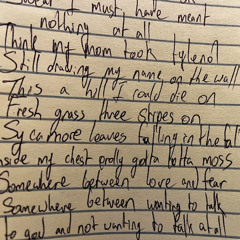 must have meant
nothing at all
Think my mom took tylenol
Still drawing my name on the wall
This a hill I could die on
Fresh grass three stripes on
Sycamore leaves falling in the fall
inside my chest prolly gotta lotta moss
Somewhere between love and fear
Somewhere between wanting to talk
to god and not wanting to talk at all